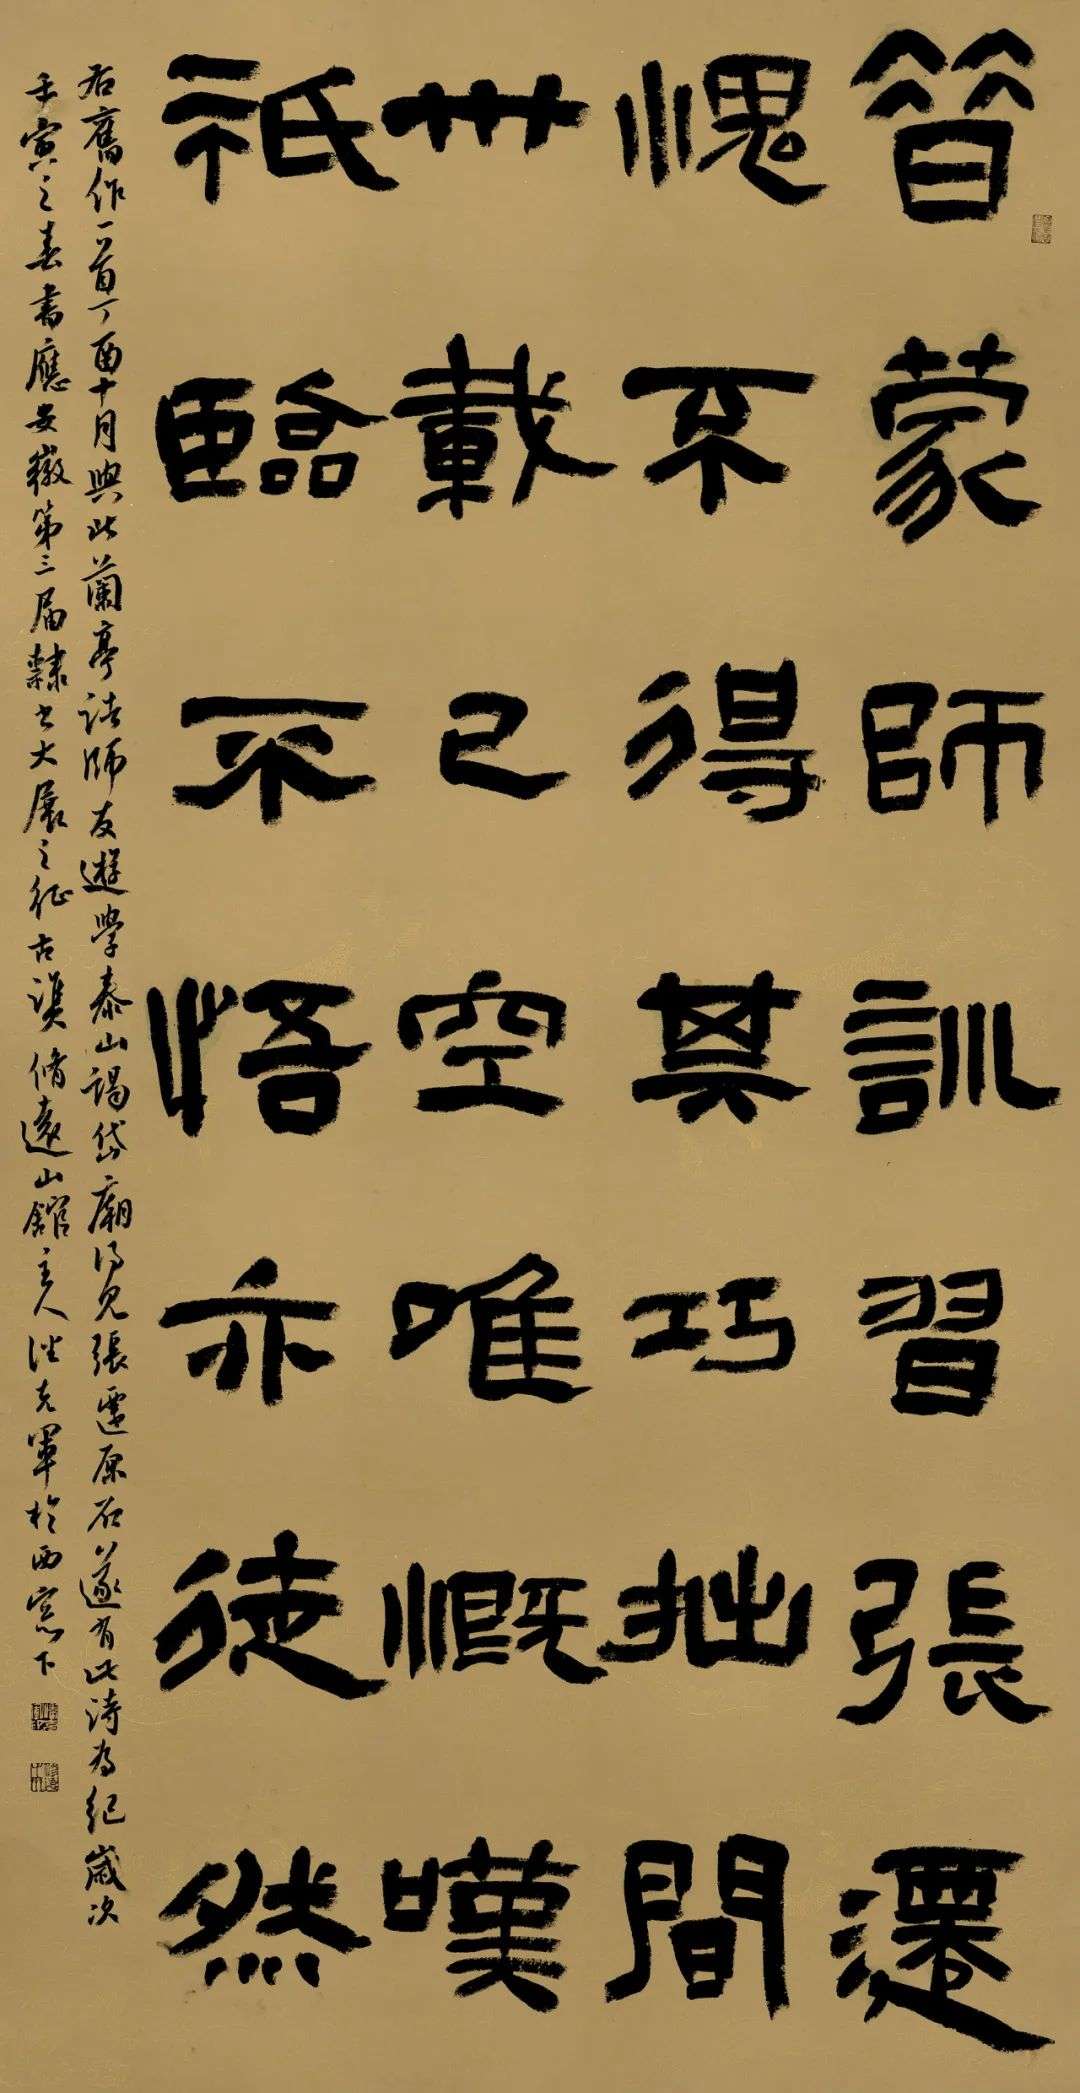 昔蒙師訓習張遷
愧不得其巧拙間
卅載已空唯慨嘆
祇臨不悟亦徒然
右舊作一首丁酉十月與此蘭亭諸師友遊學泰山謁岱廟得見張遷原石遂有此詩為紀歲次
壬寅之春書應安徽第三届隸書大展之征古滇脩遠山館主人克軍於西窓下